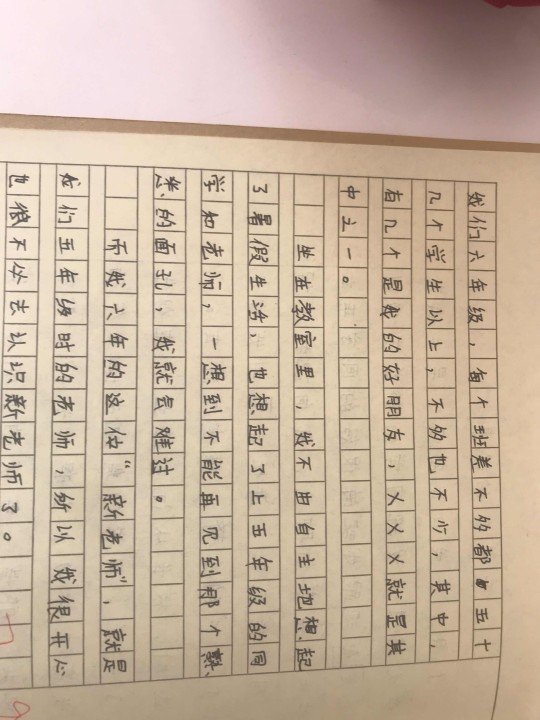 我们六年级，每个班差不的都由五十
几个学生以上，不够也不少，其中，
有几个是我的好朋友，XXX就是其
中之一。
坐在教室里，我不由自主地想起
了暑假生活，也想起了上五年级的同
学和老师，一想到不能再见到那个熟
悉的面孔，我就会难过。
而我六年的这位“新老师”，就是
我们五年级时的老师，所以我很开心
也很不必去认识新老师了。